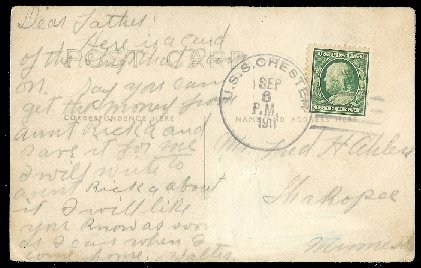 Dear Father!
Here is a card
POST CARD
of the ship that I am
on. Say you can
get the money from
CORRESPONDENCE HERE
aunt Ricka and
save it for me
I will write to
aunt Ricka about
it I will like
you know as soon
as I can when I
come home. Walter
U.S.S. CHESTER
SEP
6
P.M.
1911
NAME AND ADDRESS HERE
Mr Fred
Shakopee
Minnesota